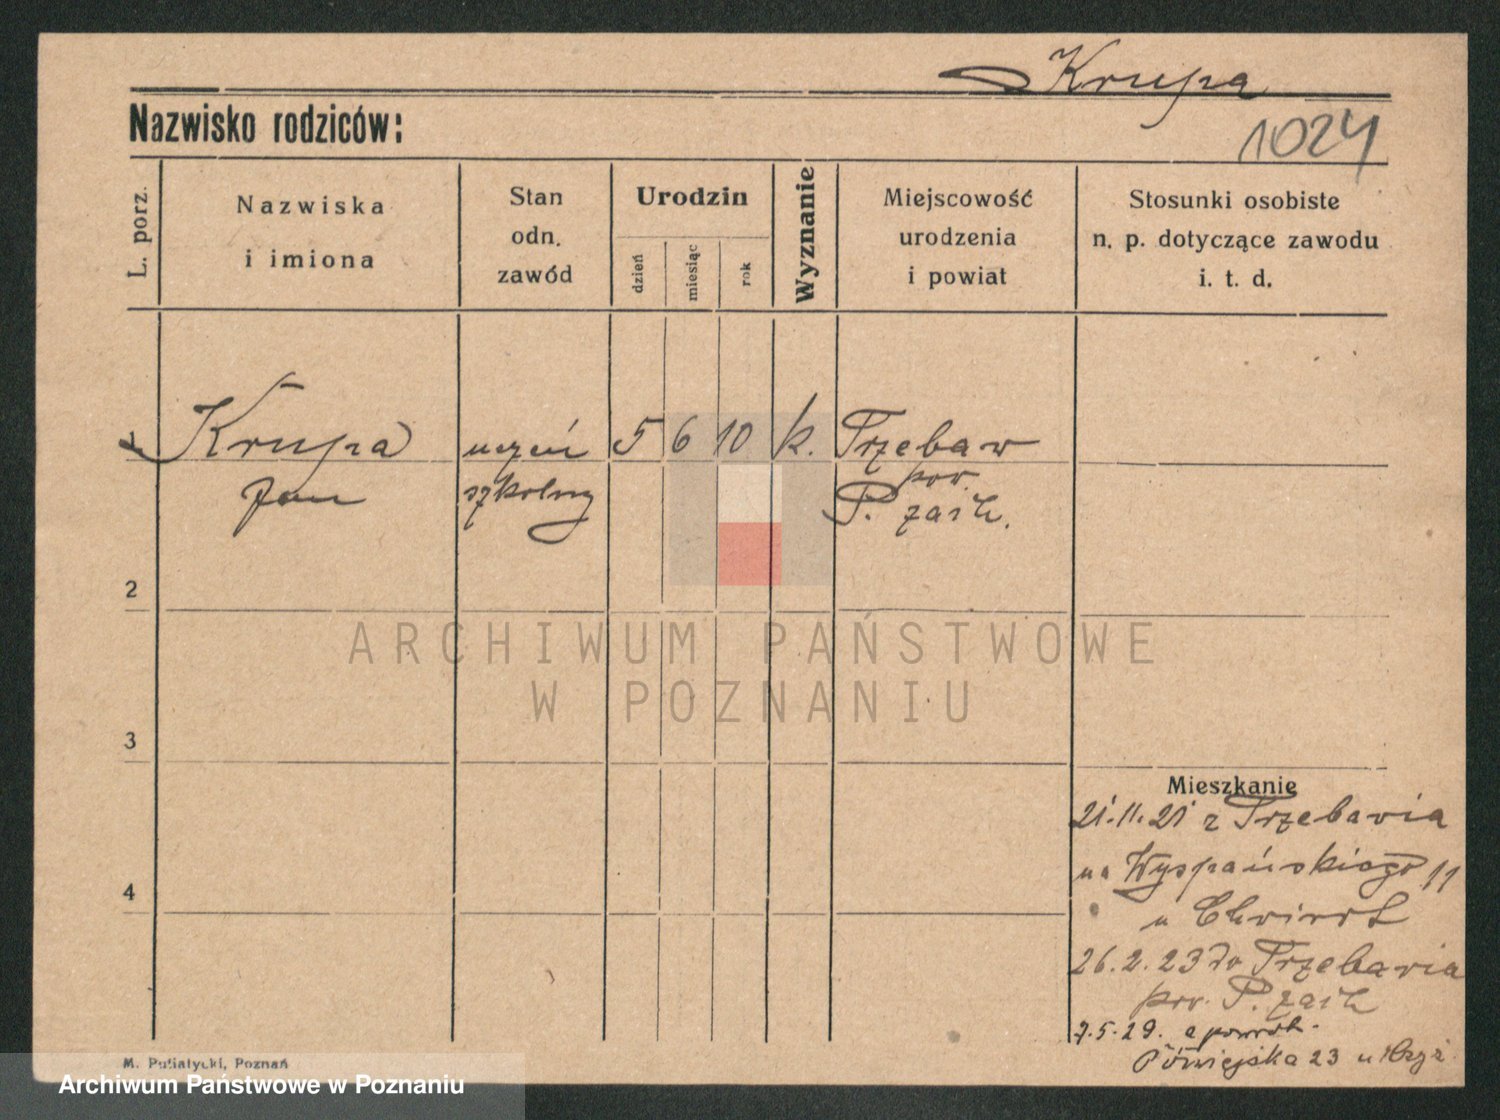 Krupa
Nazwisko rodziców:
1024
L. porz.
Nazwiska
i imiona
Stan
odn.
zawód
Urodzin
dzień
miesiąc
rok
Wyznanie
Miejscowość
urodzenia
i powiat
Stosunki osobiste
n. p. dotyczące zawodu
i. t. d.
1 Krupa uczeń 5 6 10 k. Trzebaw
Jan szkolny pow.
P. zach.
2
ARCHIWUM PAŃSTWOWE
W POZNANIU
3
Mieszkanie
21.11.21 z Trzebawia
na Wyspańskiego 11
4
u
26.2.23 do Trzebawia
pow. P. zach
7.5.29. z powrot.
Półwiejska 23 u
M. Putiatycki, Poznań
Archiwum Państwowe w Poznaniu